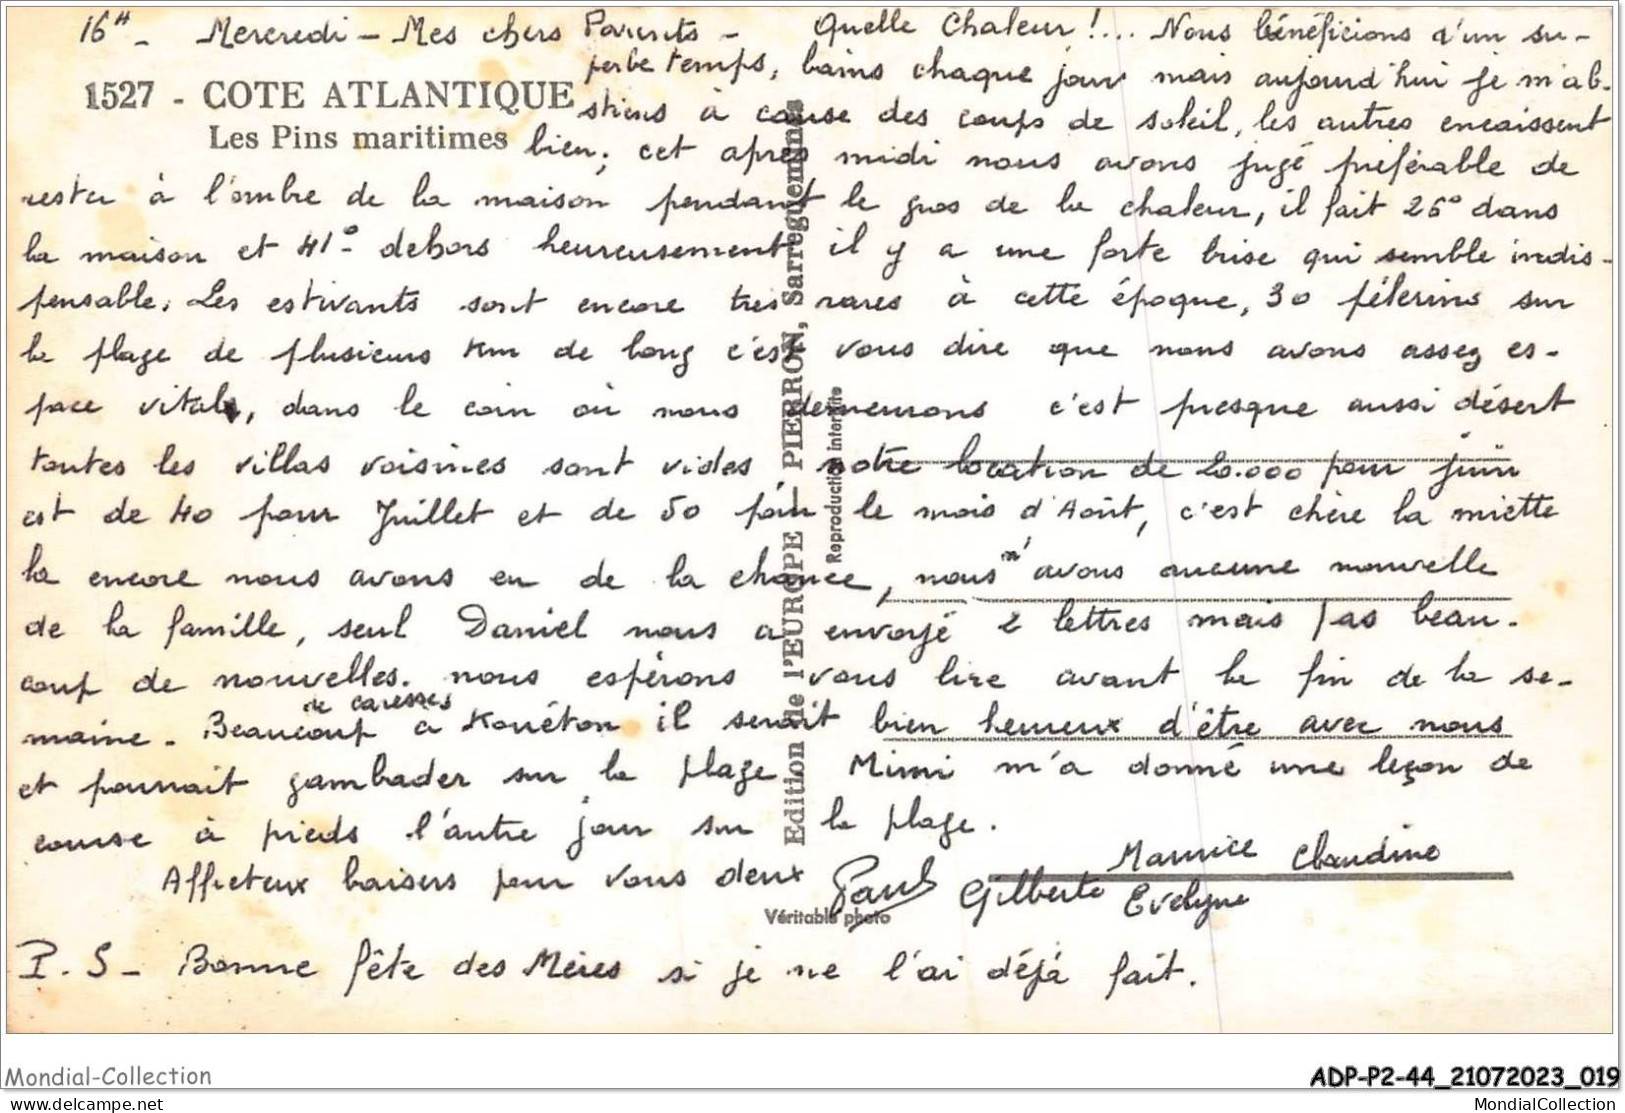 16H - Mercredi - Mes chers Parents - Quelle Chaleur !... Nous bénéficions d'un su-
perbe temps, bains chaque jour mais aujourd'hui je m'ab-
1527 - COTE ATLANTIQUE
stiens à cause des coups de soleil, les autres encaissent
Les Pins maritimes
bien; cet après midi nous avons jugé préférable de
rester à l'ombre de la maison pendant le gros de la chaleur, il fait 26° dans
la maison et 41° dehors heureusement il y a une forte brise qui semble indis-
pensable. Les estivants sont encore très rares à cette époque, 30 pélerins sur
la plage de plusieurs Km de long c'est vous dire que nous avons assez es-
pace vital, dans le coin où nous demeurons c'est presque aussi désert
toutes les villas voisines sont vides notre location de 20.000 pour juin
est de 40 pour Juillet et de 50 pour le mois d'Août, c'est chère la miette
la encore nous avons eu de la chance, nous n'avons aucune nouvelle
de la famille, seul Daniel nous a envoyé 2 lettres mais pas beau-
coup de nouvelles. nous espérons vous lire avant la fin de la se-
maine. Beaucoup de caresses a Kouéton il serait bien heureux d'être avec nous
et pourrait gambader sur la plage Mimi m'a donné une leçon de
course à pieds l'autre jour sur la plage.
Affecteux baisers pour vous deux Paul Gilberte Maurice Claudine
Evelyne
P.S - Bonne fête des Mères si je ne l'ai déjà fait.
Edition de l'EUROPE - PIERRON, Sarreguemines
Reproduction interdite
Véritable photo
Mondial-Collection
ADP-P2-44_21072023_019
www.delcampe.net
MondialCollection